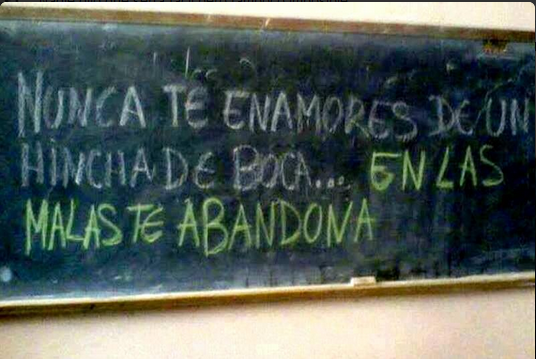 NUNCA TE ENAMORES DE UN
HINCHA DE BOCA... EN LAS
MALAS TE ABANDONA